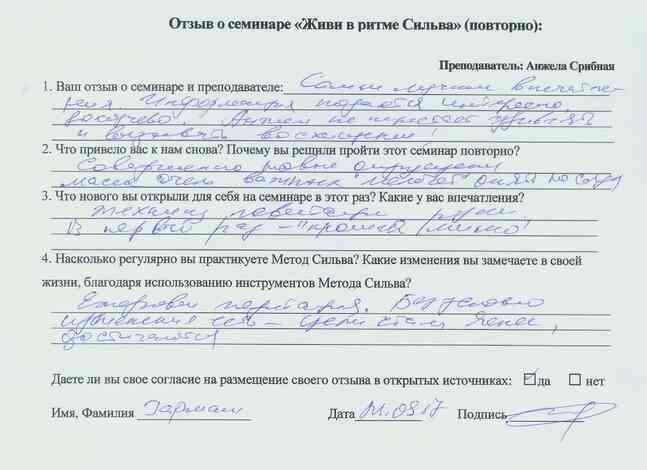 Отзыв о семинаре «Живи в ритме Сильва» (повторно):
Преподаватель: Анжела Срибная
1. Ваш отзыв о семинаре и преподавателе: Самые лучшие впечатле-
ния. Информация подается интересно,
доступно. Анжела не перестает удивлять
и вызывать восхищение!
2. Что привело вас к нам снова? Почему вы решили пройти этот семинар повторно?
Совершенно новые ощущения
масса очень важных "мелочей"
3. Что нового вы открыли для себя на семинаре в этот раз? Какие у вас впечатления?
Техники левитации руки.
В первый раз – "прошла мимо"
4. Насколько регулярно вы практикуете Метод Сильва? Какие изменения вы замечаете в своей
жизни, благодаря использованию инструментов Метода Сильва?
Ежедневно. Безусловно
изменения есть – цели стали яснее,
достигаются
Даете ли вы свое согласие на размещение своего отзыва в открытых источниках: да нет
Имя, Фамилия Дата 09.17 Подпись